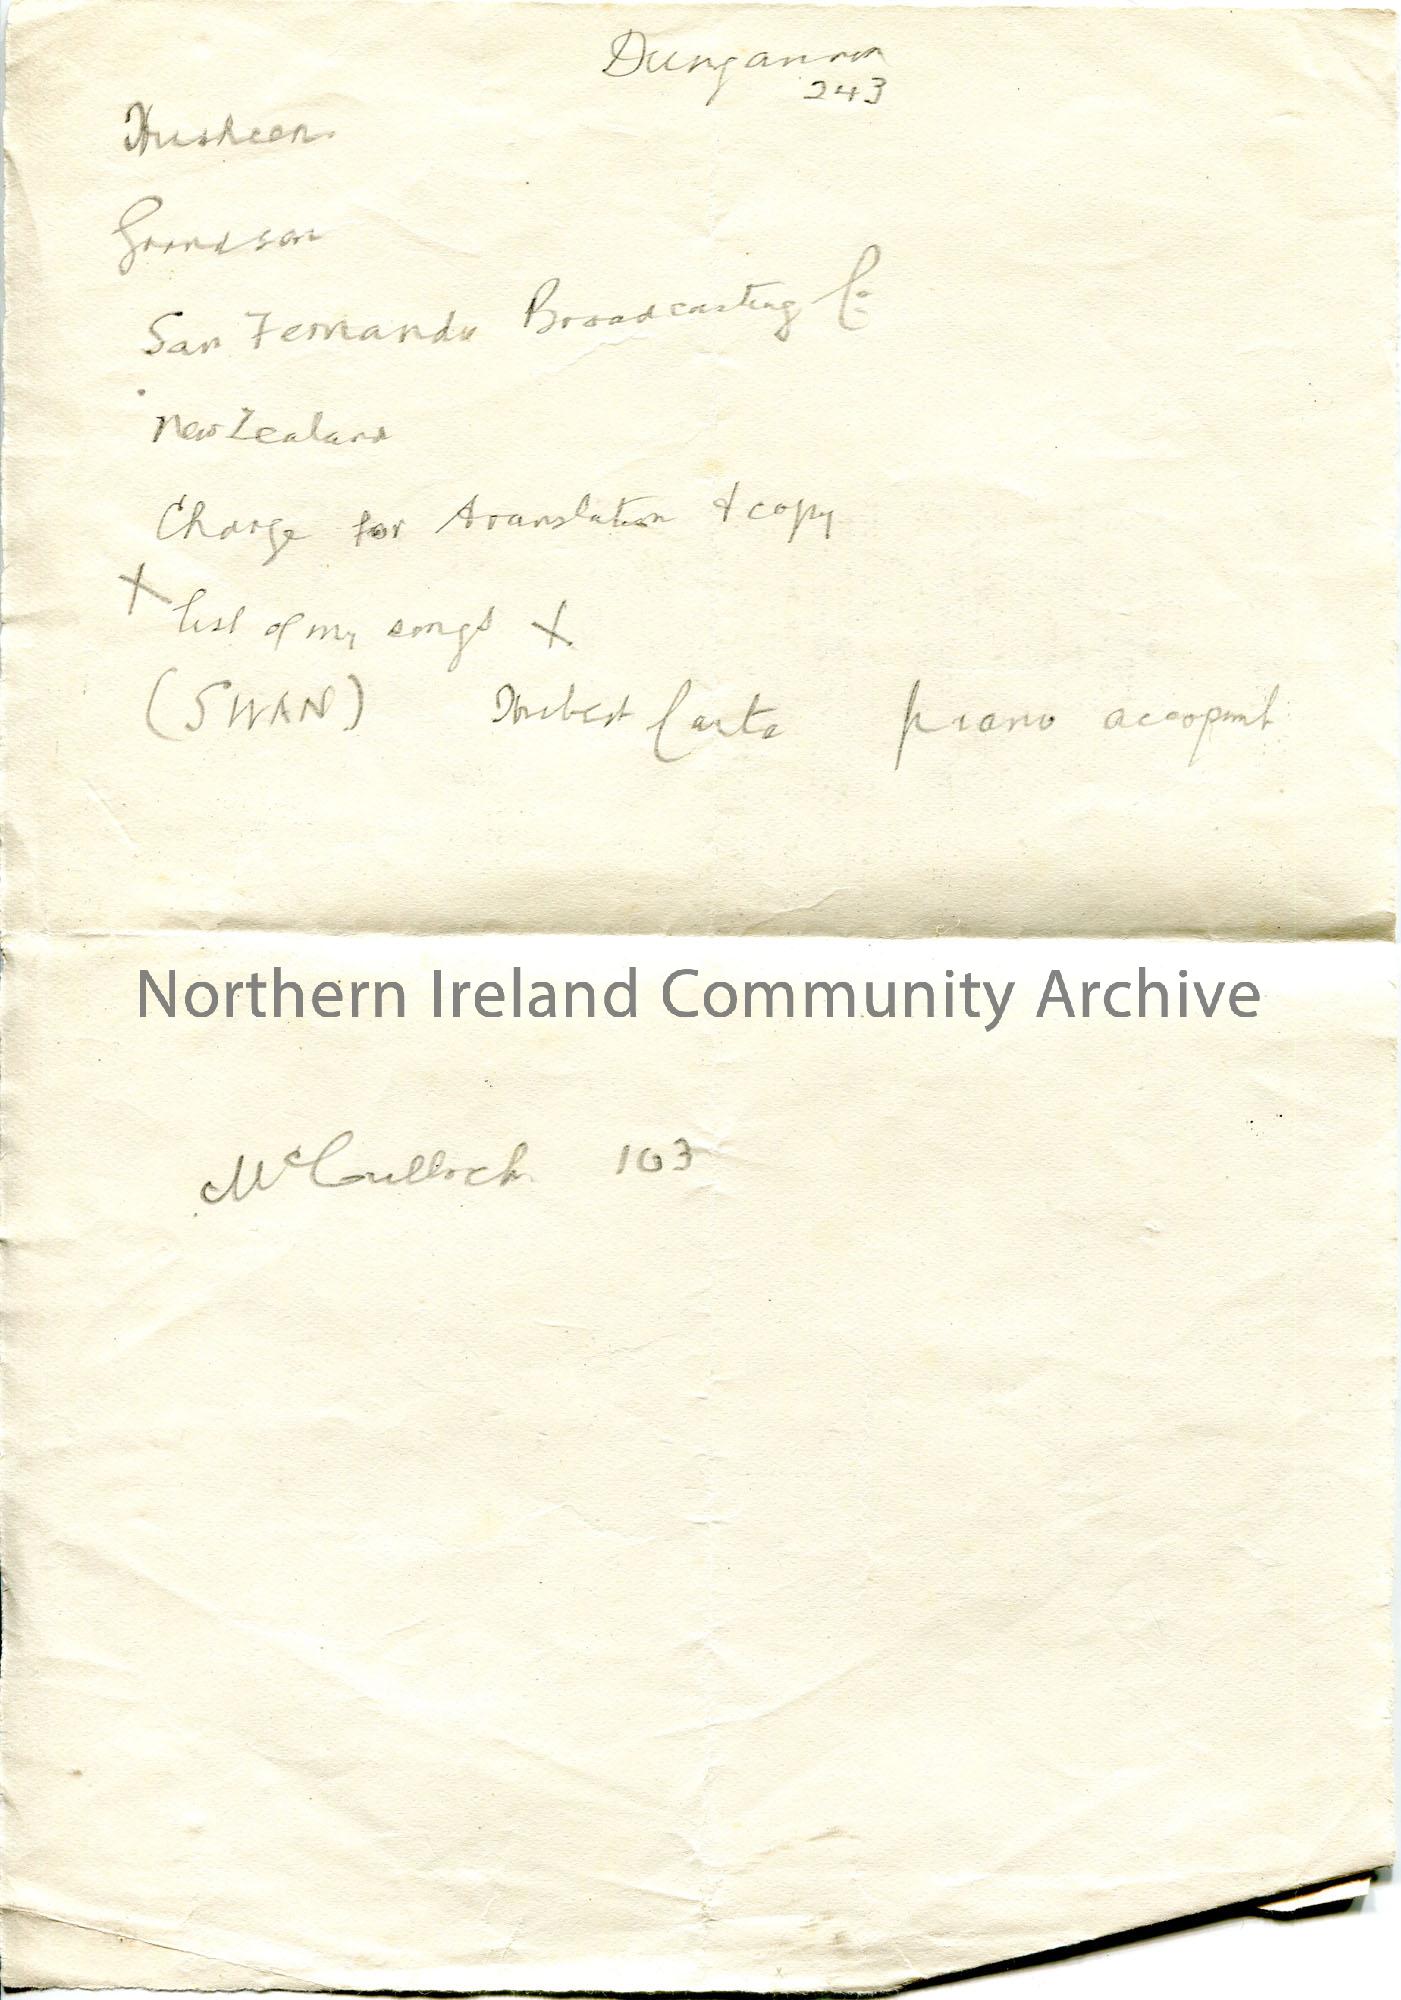 Dungannon
243
Husheen
Grandson
San Fernando Broadcasting Co
New Zealand
Charge for translation & copy
X list of my songs X
(SWAN) piano accopmt
Northern Ireland Community Archive
McCulloch 103